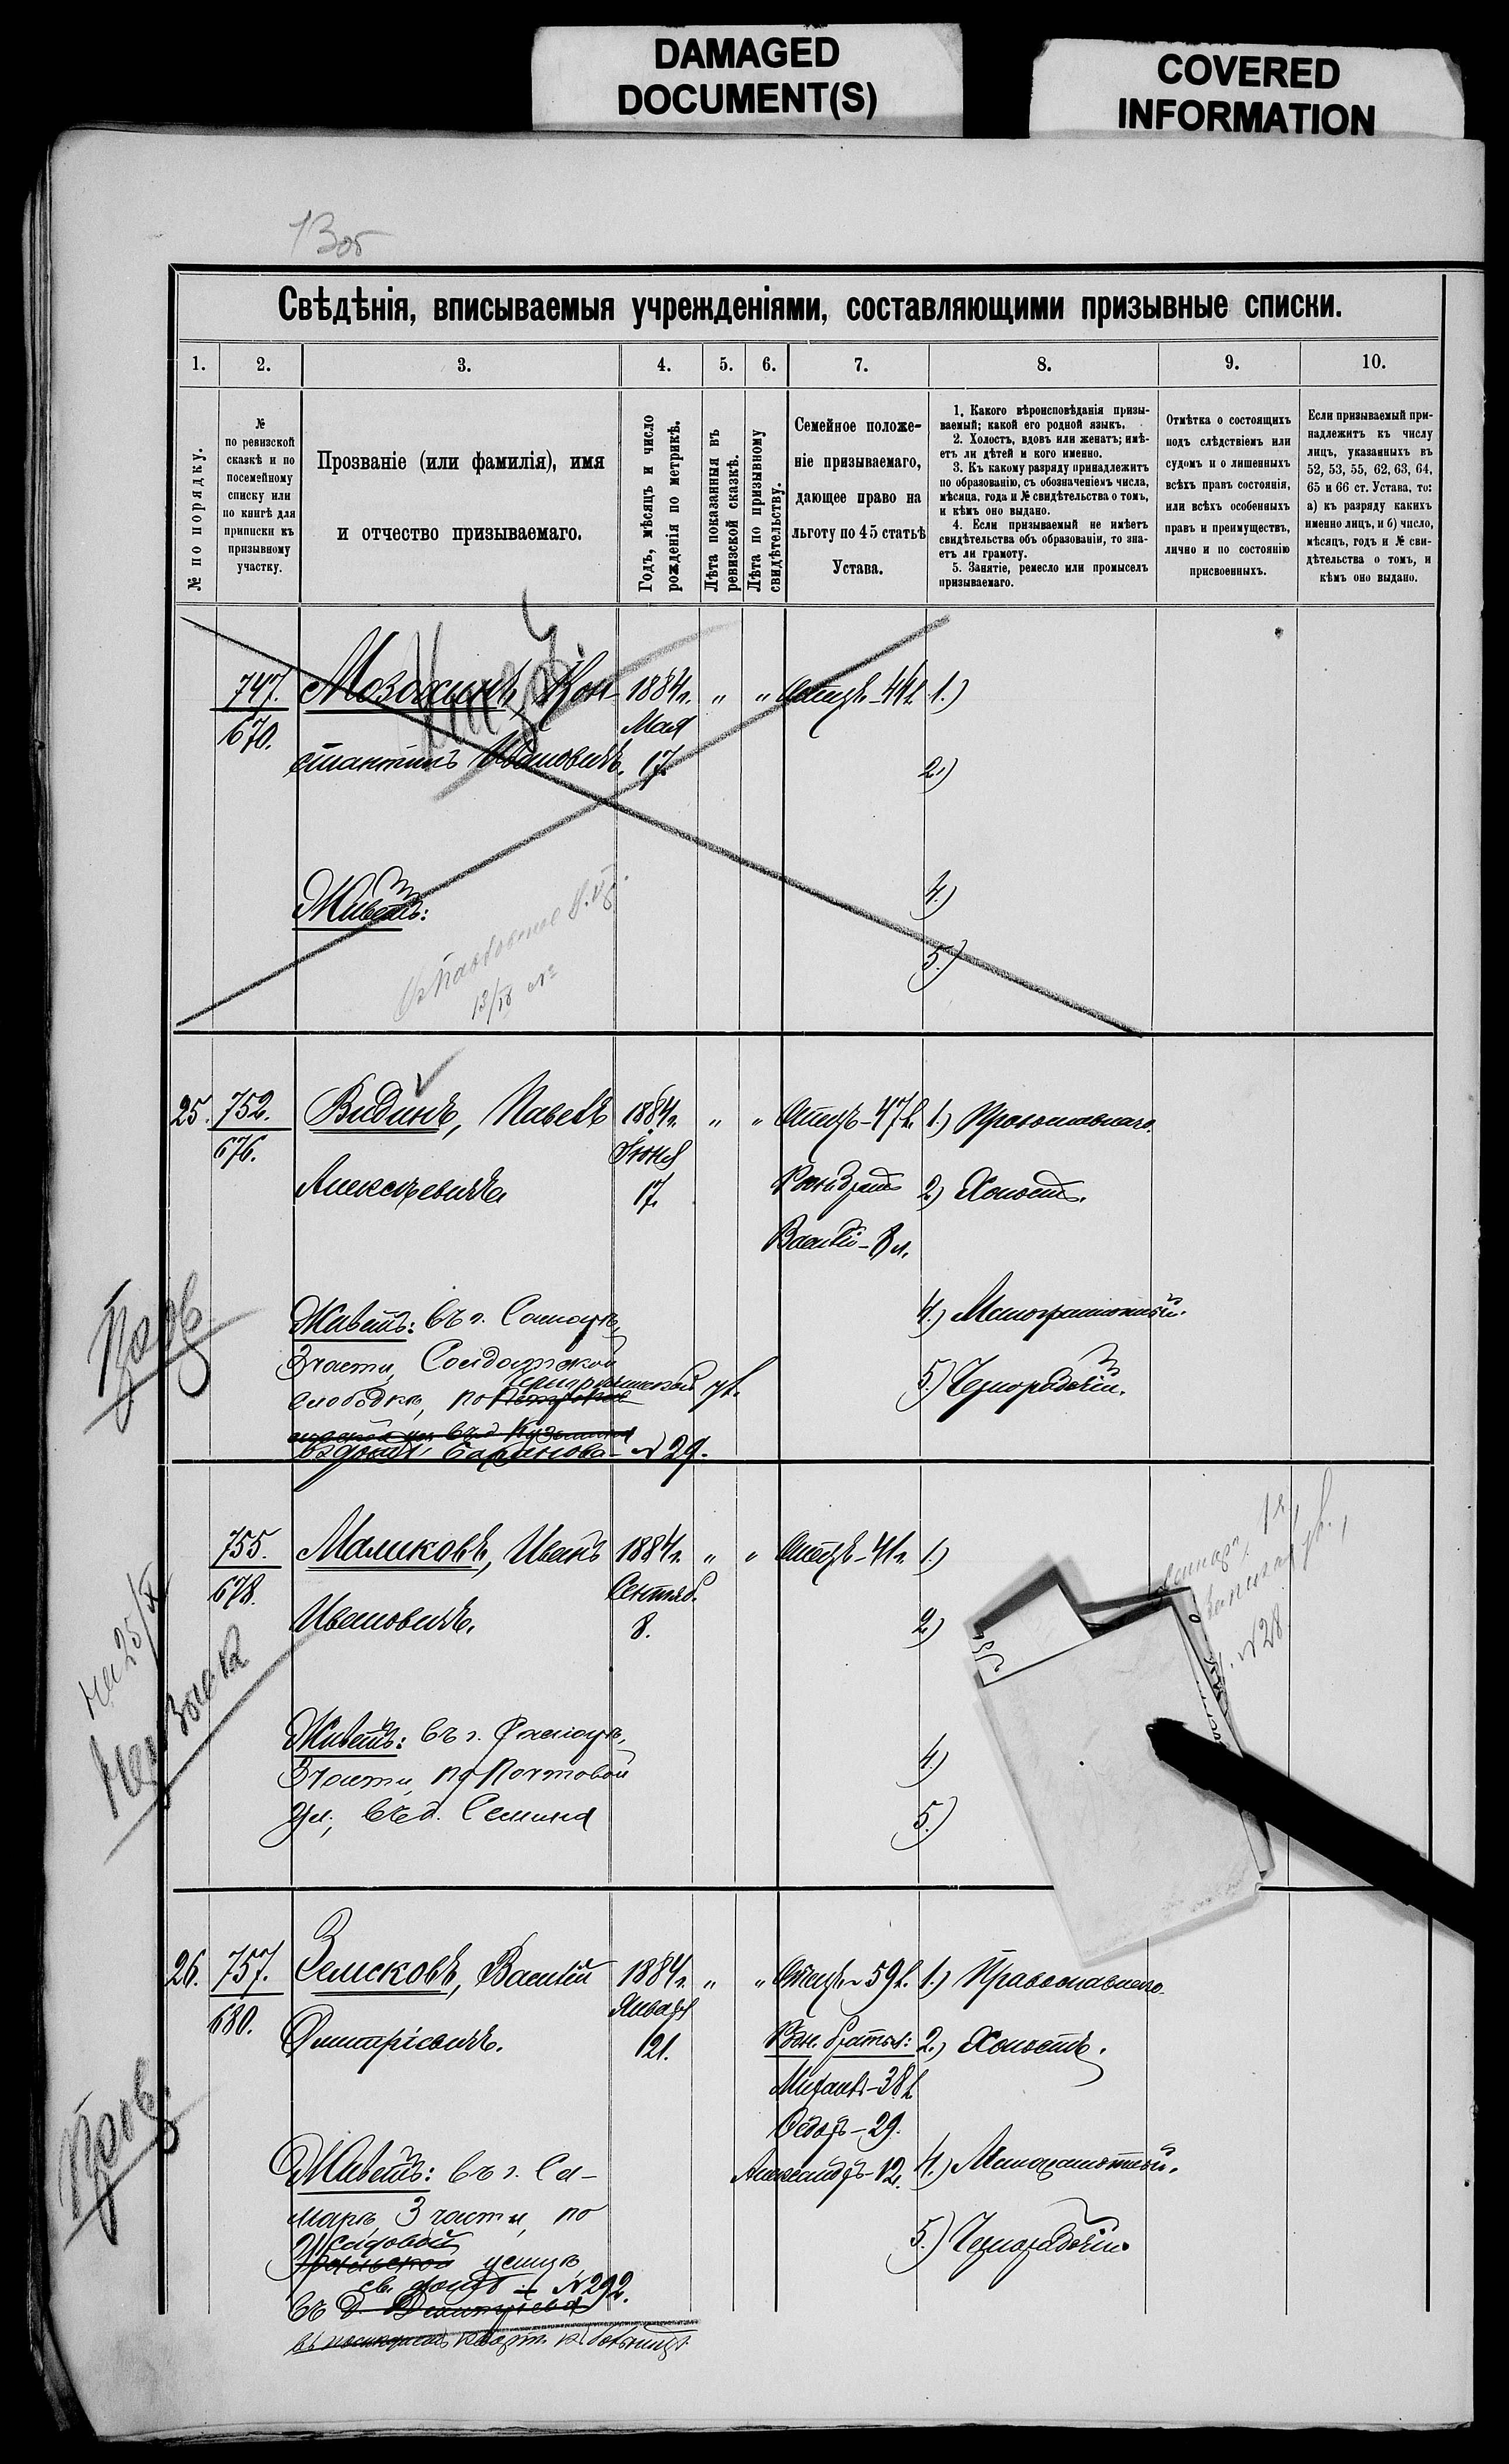 DAMAGED
DOCUMENT(S)
COVERED
INFORMATION
13 об
Свѣдѣнія, вписываемыя учрежденіями, составляющими призывные списки.
1. 2. 3. 4. 5. 6. 7. 8. 9. 10.
№ по порядку.
№
по ревизской
сказкѣ и по
посемейному
списку или
по книгѣ для
приписки къ
призывному
участку.
Прозваніе (или фамилія), имя
и отчество призываемаго.
Годъ, мѣсяцъ и число
рожденія по метрикѣ.
Лѣта показанныя въ
ревизской сказкѣ.
Лѣта по призывному
свидѣтельству.
Семейное положе-
ніе призываемаго,
дающее право на
льготу по 45 статьѣ
Устава.
1. Какого вѣроисповѣданія призы-
ваемый; какой его родной языкъ.
2. Холостъ, вдовъ или женатъ; имѣ-
етъ ли дѣтей и кого именно.
3. Къ какому разряду принадлежитъ
по образованію, съ обозначеніемъ числа,
мѣсяца, года и № свидѣтельства о томъ,
и кѣмъ оно выдано.
4. Если призываемый не имѣетъ
свидѣтельства объ образованіи, то зна-
етъ ли грамоту.
5. Занятіе, ремесло или промыселъ
призываемаго.
Отмѣтка о состоящихъ
подъ слѣдствіемъ или
судомъ и о лишенныхъ
всѣхъ правъ состоянія,
или всѣхъ особенныхъ
правъ и преимуществъ,
лично и по состоянію
присвоенныхъ.
Если призываемый при-
надлежитъ къ числу
лицъ, указанныхъ въ
52, 53, 55, 62, 63, 64,
65 и 66 ст. Устава, то:
а) къ разряду какихъ
именно лицъ, и б) число,
мѣсяцъ, годъ и № сви-
дѣтельства о томъ, и
кѣмъ оно выдано.
747. Мозохинъ, Кон- 1884г. " " Отецъ-44л. 1.)
670. Мая
стантинъ Ивановичъ. 17. 2.)
Живетъ: 4.)
5.)
25. 752. Видинъ, Павелъ 1884г. " " Отецъ-47л. 1.) Православнаго.
676. Іюня
Алексѣевичъ 17. Родн. братъ 2.) Холостъ.
Василій-8 л.
Живетъ: въ г. Самарѣ, 4.) Малограмотный.
3 части, Солдатской
слободкѣ, по ул. 5.) Чернорабочій.
№ 29.
755. Маликовъ, Иванъ 1884г. " " Отецъ-41г. 1.)
678. Сентяб.
Ивановичъ. 8. 2.)
на 25/X
Живетъ: въ г. Самарѣ, 4.)
3 части, по Почтовой
ул., въ д. Семина 5.)
№ 28
26. 757. Земсковъ, Василій 1884г. " " Отецъ-59л. 1.) Православнаго.
680. Января
Димитріевичъ. 21. Родн. братья: 2.) Холостъ.
Михаилъ-38л.
Ѳедоръ-29.
Живетъ: въ г. Са- Александръ-12. 4.) Малограмотный.
марѣ, 3 части, по
Садовой 5.) Чернорабочій.
улицѣ
св. домъ № 292.
въ д.